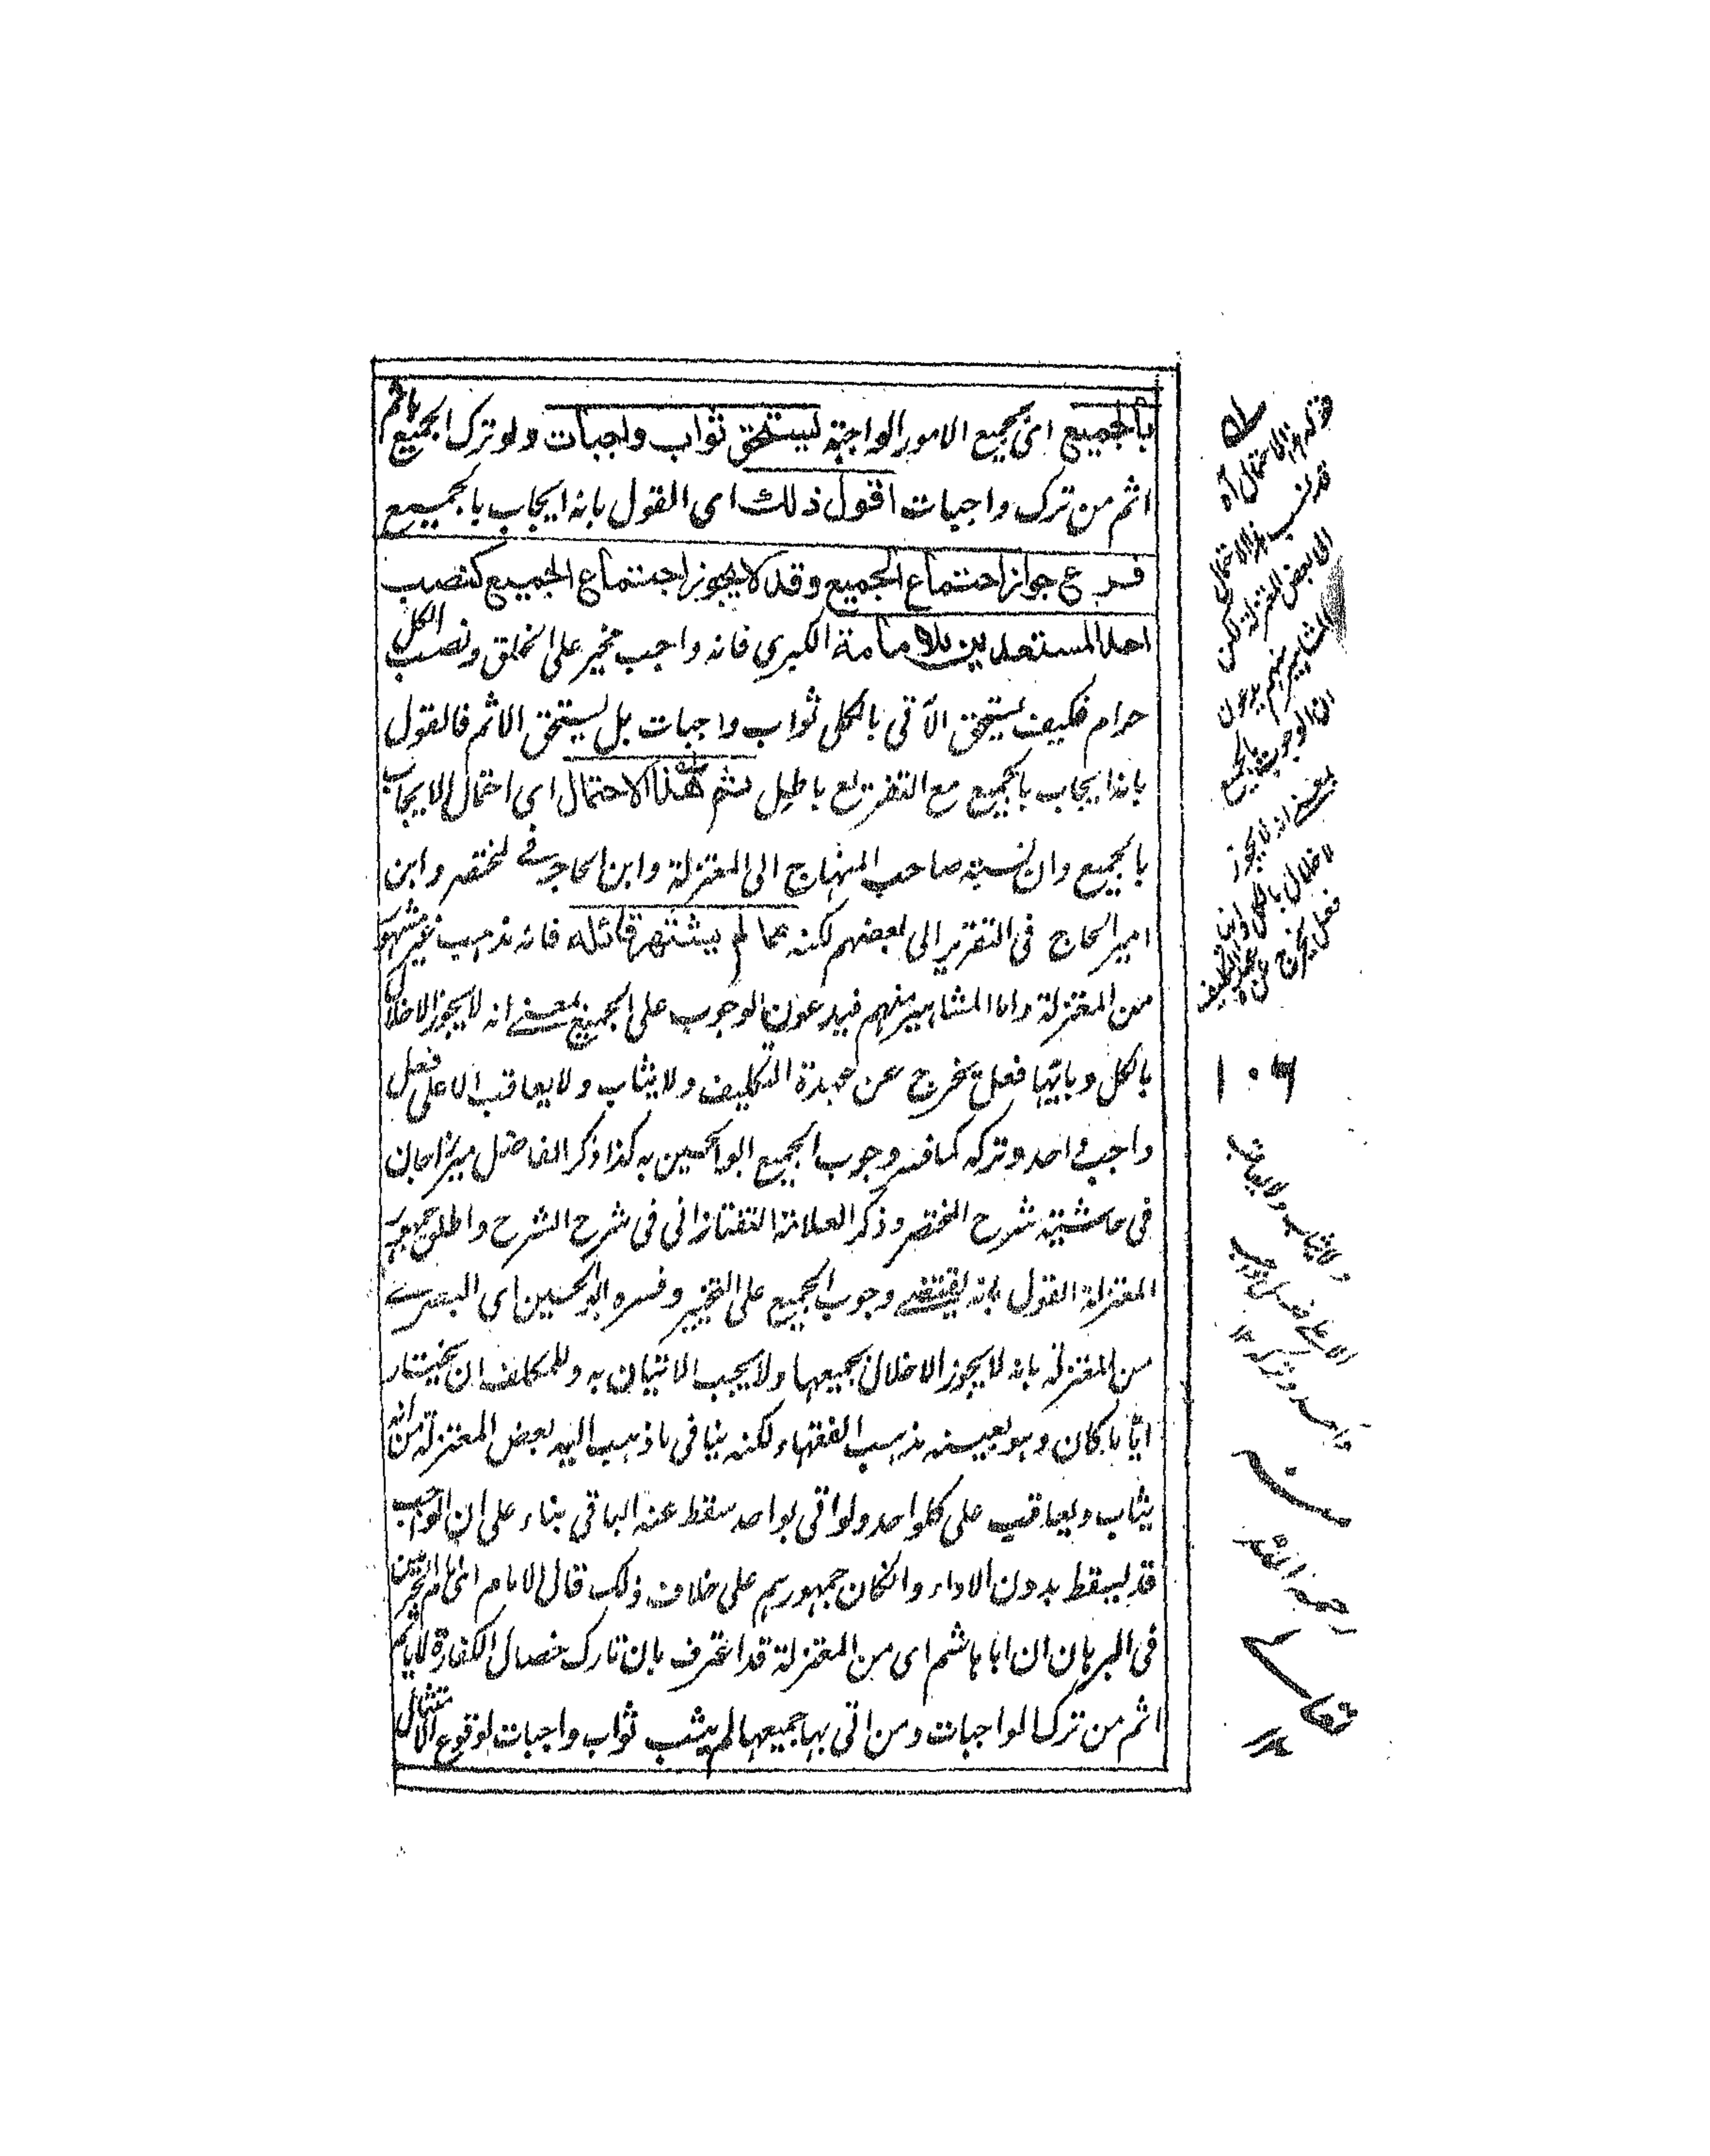 بالجميع اى بجميع الامور الواجبة يستحق ثواب واجبات ولو ترك الجميع ياثم
اثم من ترك واجبات اقول ذلك اى القول بانه ايجاب بالجميع
فرع جواز اجتماع الجميع وقد لا يجوز اجتماع الجميع كنصب
احد المستعدين للامامة الكبرى فانه واجب مخير على الخلق ونصب الكل
حرام فكيف يستحق الآتى بالكل ثواب واجبات بل يستحق الاثم فالقول
بانه ايجاب بالجميع مع التفريع باطل ثم هذا الاحتمال اى احتمال الايجاب
بالجميع وان نسبه صاحب المنهاج الى المعتزلة وابن الحاجب فى المختصر وابن
امير الحاج فى التقرير الى بعضهم لكنه مما لم يشتهر قائله فانه مذهب غير مشهور
من المعتزلة واما المشاهير منهم فيدعون الوجوب على الجميع بمعنى انه لا يجوز الاخلال
بالكل وبايها فعل يخرج عن عهدة التكليف ولا يثاب ولا يعاقب الا على فعل
واجب واحد وتركه كما فسر وجوب الجميع ابو الحسين به كذا ذكر الفاضل ميرزاجان
فى حاشية شرح المختصر وذكر العلامة التفتازانى فى شرح الشرح واطلق جمهور
المعتزلة القول بانه يقتضى وجوب الجميع على التخيير وفسره ابو الحسين اى البصرى
من المعتزلة بانه لا يجوز الاخلال بجميعها ولا يجب الاتيان به وللمكلف ان يختار
ايا ما كان وهو بعينه مذهب الفقهاء لكنه ينافى ما ذهب اليه بعض المعتزلة من انه
يثاب ويعاقب على كل واحد ولو اتى بواحد سقط عنه الباقى بناء على ان الواجب
قد يسقط بدون الاداء وان كان جمهورهم على خلاف ذلك قال الامام اى امام الحرمين
فى البرهان ان ابا هاشم اى من المعتزلة قد اعترف بان تارك خصال الكفارة لا ياثم
اثم من ترك الواجبات ومن اتى بها جميعها لم يثب ثواب واجبات لوقوع الامتثال
قوله هذا الاحتمال اه
قد نسب هذا الاحتمال
الى بعض المعتزلة لكن
المشاهير منهم يدعون
ان الوجوب بالجميع
بمعنى انه لا يجوز
الاخلال بالكل وايها
فعل يخرج عن عهدة التكليف
١٠٦
ولا يثاب ولا يعاقب
الا على فعل واجب
واحد وتركه ١٢
منه
رحمه الله
تعالى